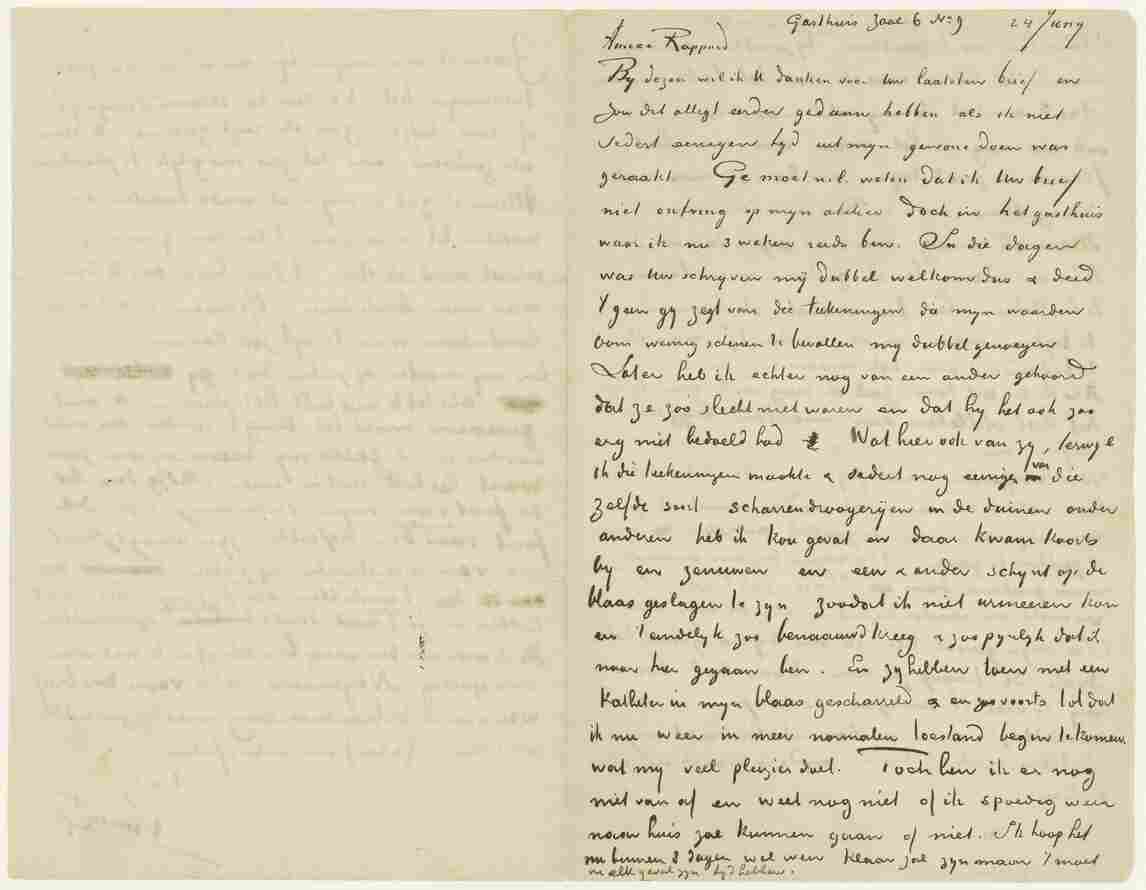 Gasthuis Zaal 6 No 9 24 Juny
Amice Rappard
By dezen wil ik U danken voor Uw laatsten brief en
zou dit alligt eerder gedaan hebben als ik niet
sedert eenigen tyd uit myn gewone doen was
geraakt. Ge moet n.l. weten dat ik Uw brief
niet ontving op myn atelier doch in het gasthuis
waar ik nu 3 weken reeds ben. In die dagen
was Uw schryven mij dubbel welkom dus & deed
't geen gy zegt van die teekeningen die myn waarden
Oom weinig schenen te bevallen my dubbel genoegen
Later heb ik echter nog van een ander gehoord
dat ze zoo slecht niet waren en dat hy het ook zoo
erg niet bedoeld had Wat hier ook van zy, terwyl
ik die teekeningen maakte & sedert nog eenige van die
zelfde soort scharrendroogeryen in de duinen onder
anderen heb ik kou gevat en daar kwam koorts
by en zenuwen en een & ander schynt op de
blaas geslagen te zyn zoodat ik niet urineeren kon
en 't eindelyk zoo benaauwd kreeg & zoo pynlyk dat ik
naar hier gegaan ben. En zy hebben toen met een
Katheter in myn blaas gescharreld & en zoo voorts tot dat
ik nu weer in meer normalen toestand begin te komen
wat my veel plezier doet. Toch ben ik er nog
niet van af en weet nog niet of ik spoedig weer
naar huis zal kunnen gaan of niet. Ik hoop het
nu binnen 8 dagen wel weer klaar zal zyn maar 't moet
in elk geval zyn tyd hebben.